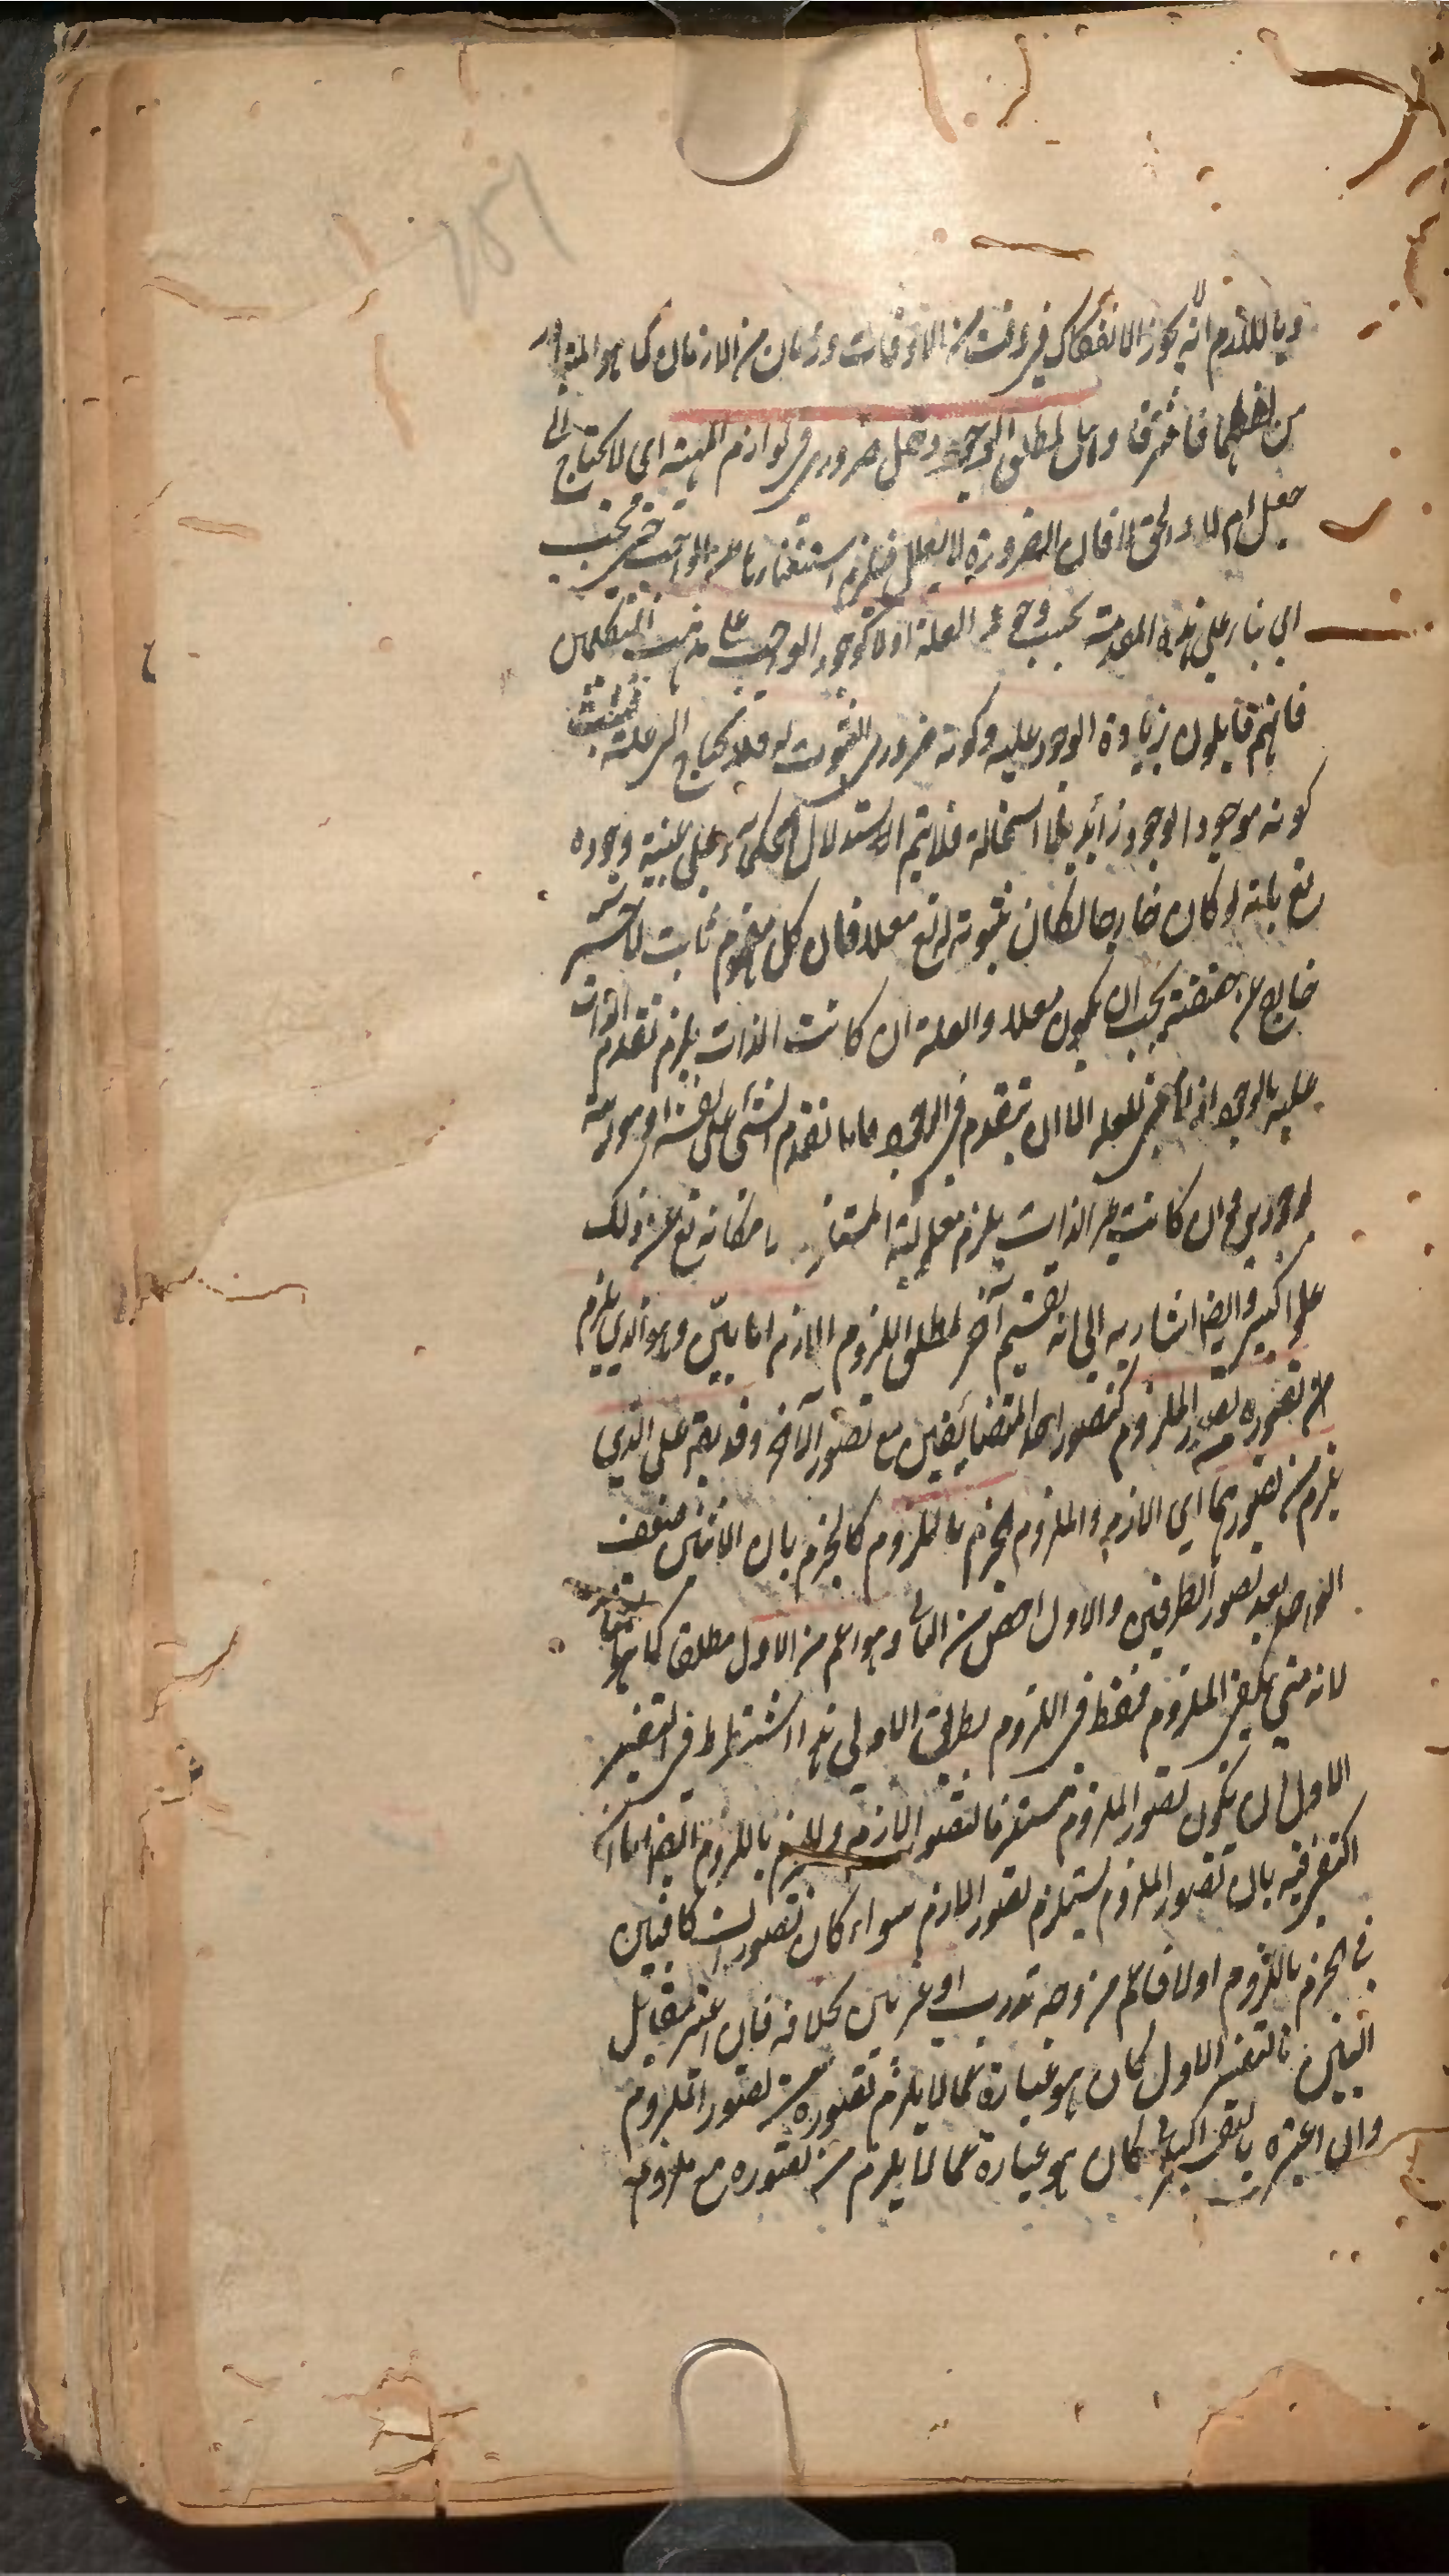 وباللازم انه لا يجوز الانفكاك في وقت من الاوقات وزمان من الازمان كما هو المتبادر
من لفظهما فافترقا وهل لمطلق الوجود دخل ضروري في لوازم المهية اي لا يحتاج الى
جعل ام لا والحق لا فان الضرورة لا يعلل فيلزم استغناؤها عن الواجب
اي بناء على هذه المقدمة يجب وجود العلة اولا كوجود الواجب على مذهب المتكلمين
فانهم قايلون بزيادة الوجود عليه وكونه ضروري الثبوت له فلا يحتاج الى علة فيثبت
كونه موجودا بوجود زائد بلا استحالة فلا يتم الاستدلال الحكماء على عينية وجوده
تع بانه لو كان خارجا لكان ثبوته له تع معللا فان كل مفهوم ثابت لاخر
خارج عن حقيقته يجب ان يكون معللا والعلة ان كانت الذات يلزم تقدم الذات
عليه بالوجود اذ لا معنى للعلة الا ان يتقدم في الوجود فاما تقدم الشئ على نفسه او موجوديته
بوجودين وان كانت غير الذات يلزم معلولية المستلزم بامكانه تع عن ذلك
علوا كبيرا وايضا اشار به الى انه تقسيم آخر لمطلق اللزوم اللازم اما بيّن وهو الذي يلزم
من تصوره تصور الملزوم كتصور احد المتضائفين مع تصور الآخر وقد يقع على الذي
يلزم من تصورهما اي اللازم والملزوم الجزم باللزوم كالجزم بان الاثنين ضعف
الواحد بعد تصور الطرفين والاول اخص من الثاني وهو اعم من الاول مطلقا كما قالوا
لانه متى يكفي الملزوم فقط في اللزوم بطريق الاولى هذا اذا اشترط في التفسير
الاول ان يكون تصور الملزوم مستلزما لتصور اللازم وللجزم باللزوم ايضا اما اذا
اكتفي فيه بان تصور الملزوم يستلزم تصور اللازم سواء كان تصورات كافيين
في الجزم باللزوم اولا فاعم من وجه تدرب او غير بين بخلافه فان اعتبر مقابل
البين بالتفسير الاول كان هو عبارة عما لا يلزم تصوره من تصور الملزوم
وان اعتبره بالتفسير الثاني كان هو عبارة عما لا يلزم من تصوره مع ملزومه